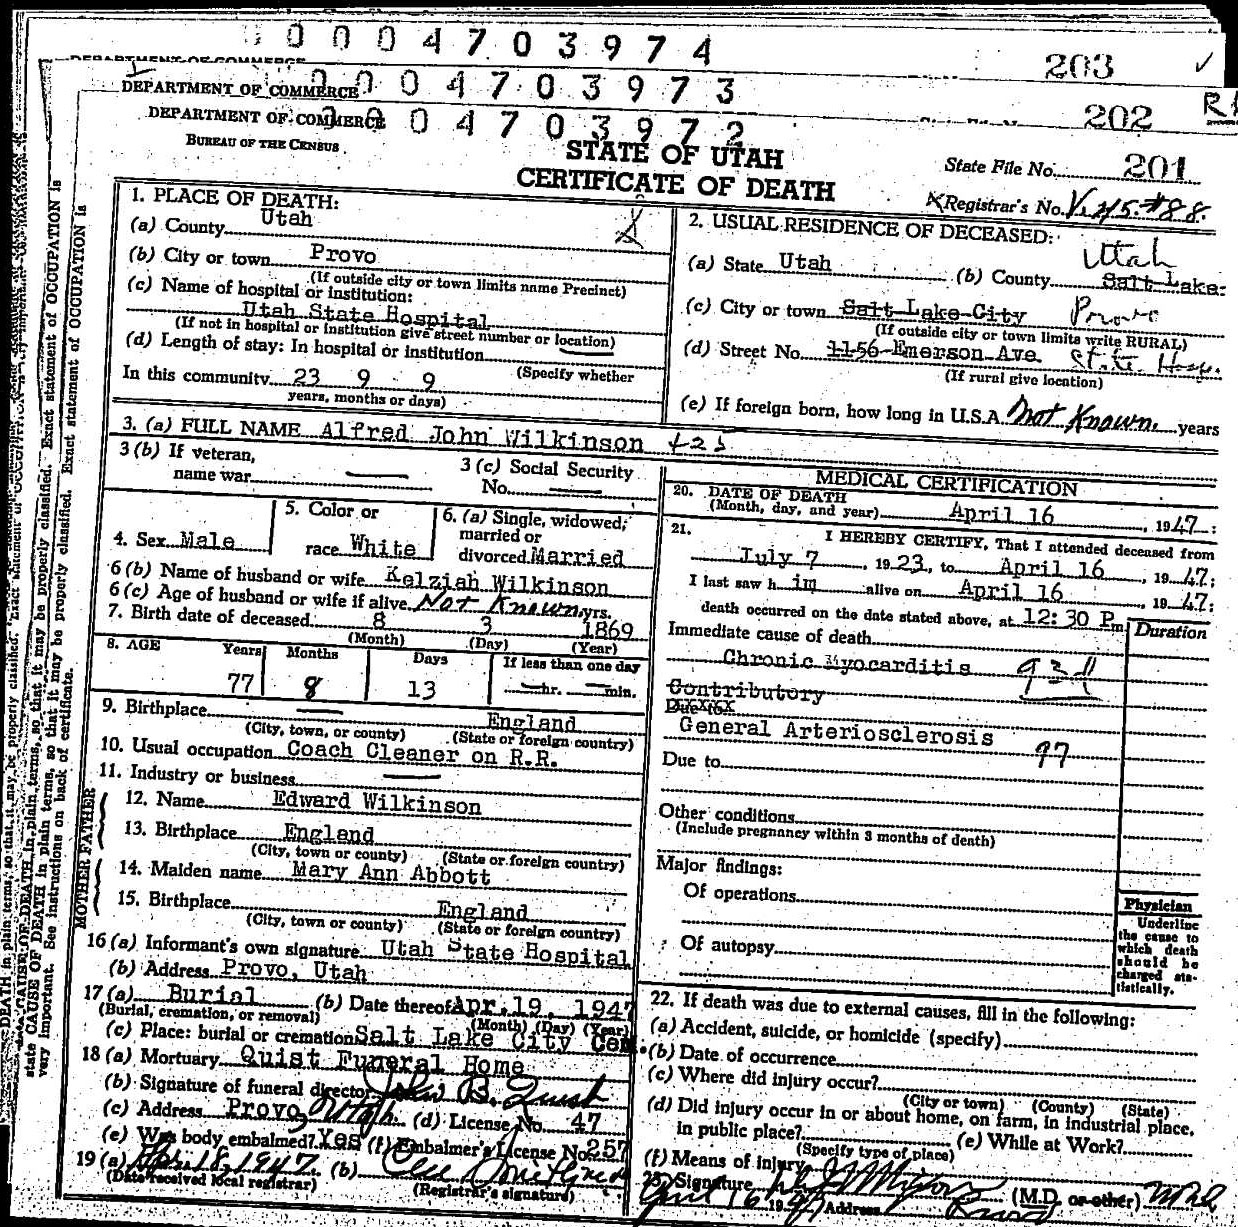 0004703974
DEPARTMENT OF COMMERCE
203
0004703973
DEPARTMENT OF COMMERCE
202
DEPARTMENT OF COMMERCE
0004703972
BUREAU OF THE CENSUS
STATE OF UTAH
CERTIFICATE OF DEATH
State File No. 201
Registrar's No. V. 45. #88.
1. PLACE OF DEATH:
(a) County Utah
(b) City or town Provo
(If outside city or town limits name Precinct)
(c) Name of hospital or institution:
Utah State Hospital
(If not in hospital or institution give street number or location)
(d) Length of stay: In hospital or institution
(Specify whether
In this community 23 9 9
years, months or days)
2. USUAL RESIDENCE OF DECEASED:
(a) State Utah (b) County Salt Lake Utah
(c) City or town Salt Lake City Provo
(If outside city or town limits write RURAL)
(d) Street No. 1156 Emerson Ave. State Hosp.
(If rural give location)
(e) If foreign born, how long in U.S.A. Not Known. years
3. (a) FULL NAME Alfred John Wilkinson
3 (b) If veteran,
name war
3 (c) Social Security
No.
4. Sex Male
5. Color or
race White
6. (a) Single, widowed,
married or
divorced Married
6 (b) Name of husband or wife Kelziah Wilkinson
6 (c) Age of husband or wife if alive Not Known yrs.
7. Birth date of deceased 8 3 1869
(Month) (Day) (Year)
8. AGE Years Months Days If less than one day
77 8 13 hr. min.
9. Birthplace England
(City, town, or county) (State or foreign country)
10. Usual occupation Coach Cleaner on R.R.
11. Industry or business
FATHER
12. Name Edward Wilkinson
13. Birthplace England
(City, town or county) (State or foreign country)
MOTHER
14. Maiden name Mary Ann Abbott
15. Birthplace England
(City, town or county) (State or foreign country)
16 (a) Informant's own signature Utah State Hospital
(b) Address Provo, Utah
17 (a) Burial (b) Date thereof Apr. 19, 1947
(Burial, cremation, or removal) (Month) (Day) (Year)
(c) Place: burial or cremation Salt Lake City Cem.
18 (a) Mortuary Quist Funeral Home
(b) Signature of funeral director John B. Quist
(c) Address Provo, Utah. (d) License No. 47
(e) Was body embalmed? Yes (f) Embalmer's License No. 257
19 (a) Apr. 18, 1947. (b)
(Date received local registrar) (Registrar's signature)
MEDICAL CERTIFICATION
20. DATE OF DEATH
(Month, day, and year) April 16, 1947:
21. I HEREBY CERTIFY, That I attended deceased from
July 7, 1923, to April 16, 1947;
I last saw h im alive on April 16, 1947;
death occurred on the date stated above, at 12:30 P m.
Duration
Immediate cause of death
Chronic Myocarditis
Contributory
Due to
General Arteriosclerosis 97
Due to
Other conditions
(Include pregnancy within 3 months of death)
Major findings:
Of operations
Of autopsy
Physician
Underline
the cause to
which death
should be
charged sta-
tistically.
22. If death was due to external causes, fill in the following:
(a) Accident, suicide, or homicide (specify)
(b) Date of occurrence
(c) Where did injury occur?
(City or town) (County) (State)
(d) Did injury occur in or about home, on farm, in industrial place,
in public place? (e) While at Work?
(Specify type of place)
(f) Means of injury
23. Signature (M.D. or other)
April 16 1947 Address Provo
state CAUSE OF DEATH in plain terms, so that it may be properly classified. Exact statement of OCCUPATION is
very important. See instructions on back of certificate.